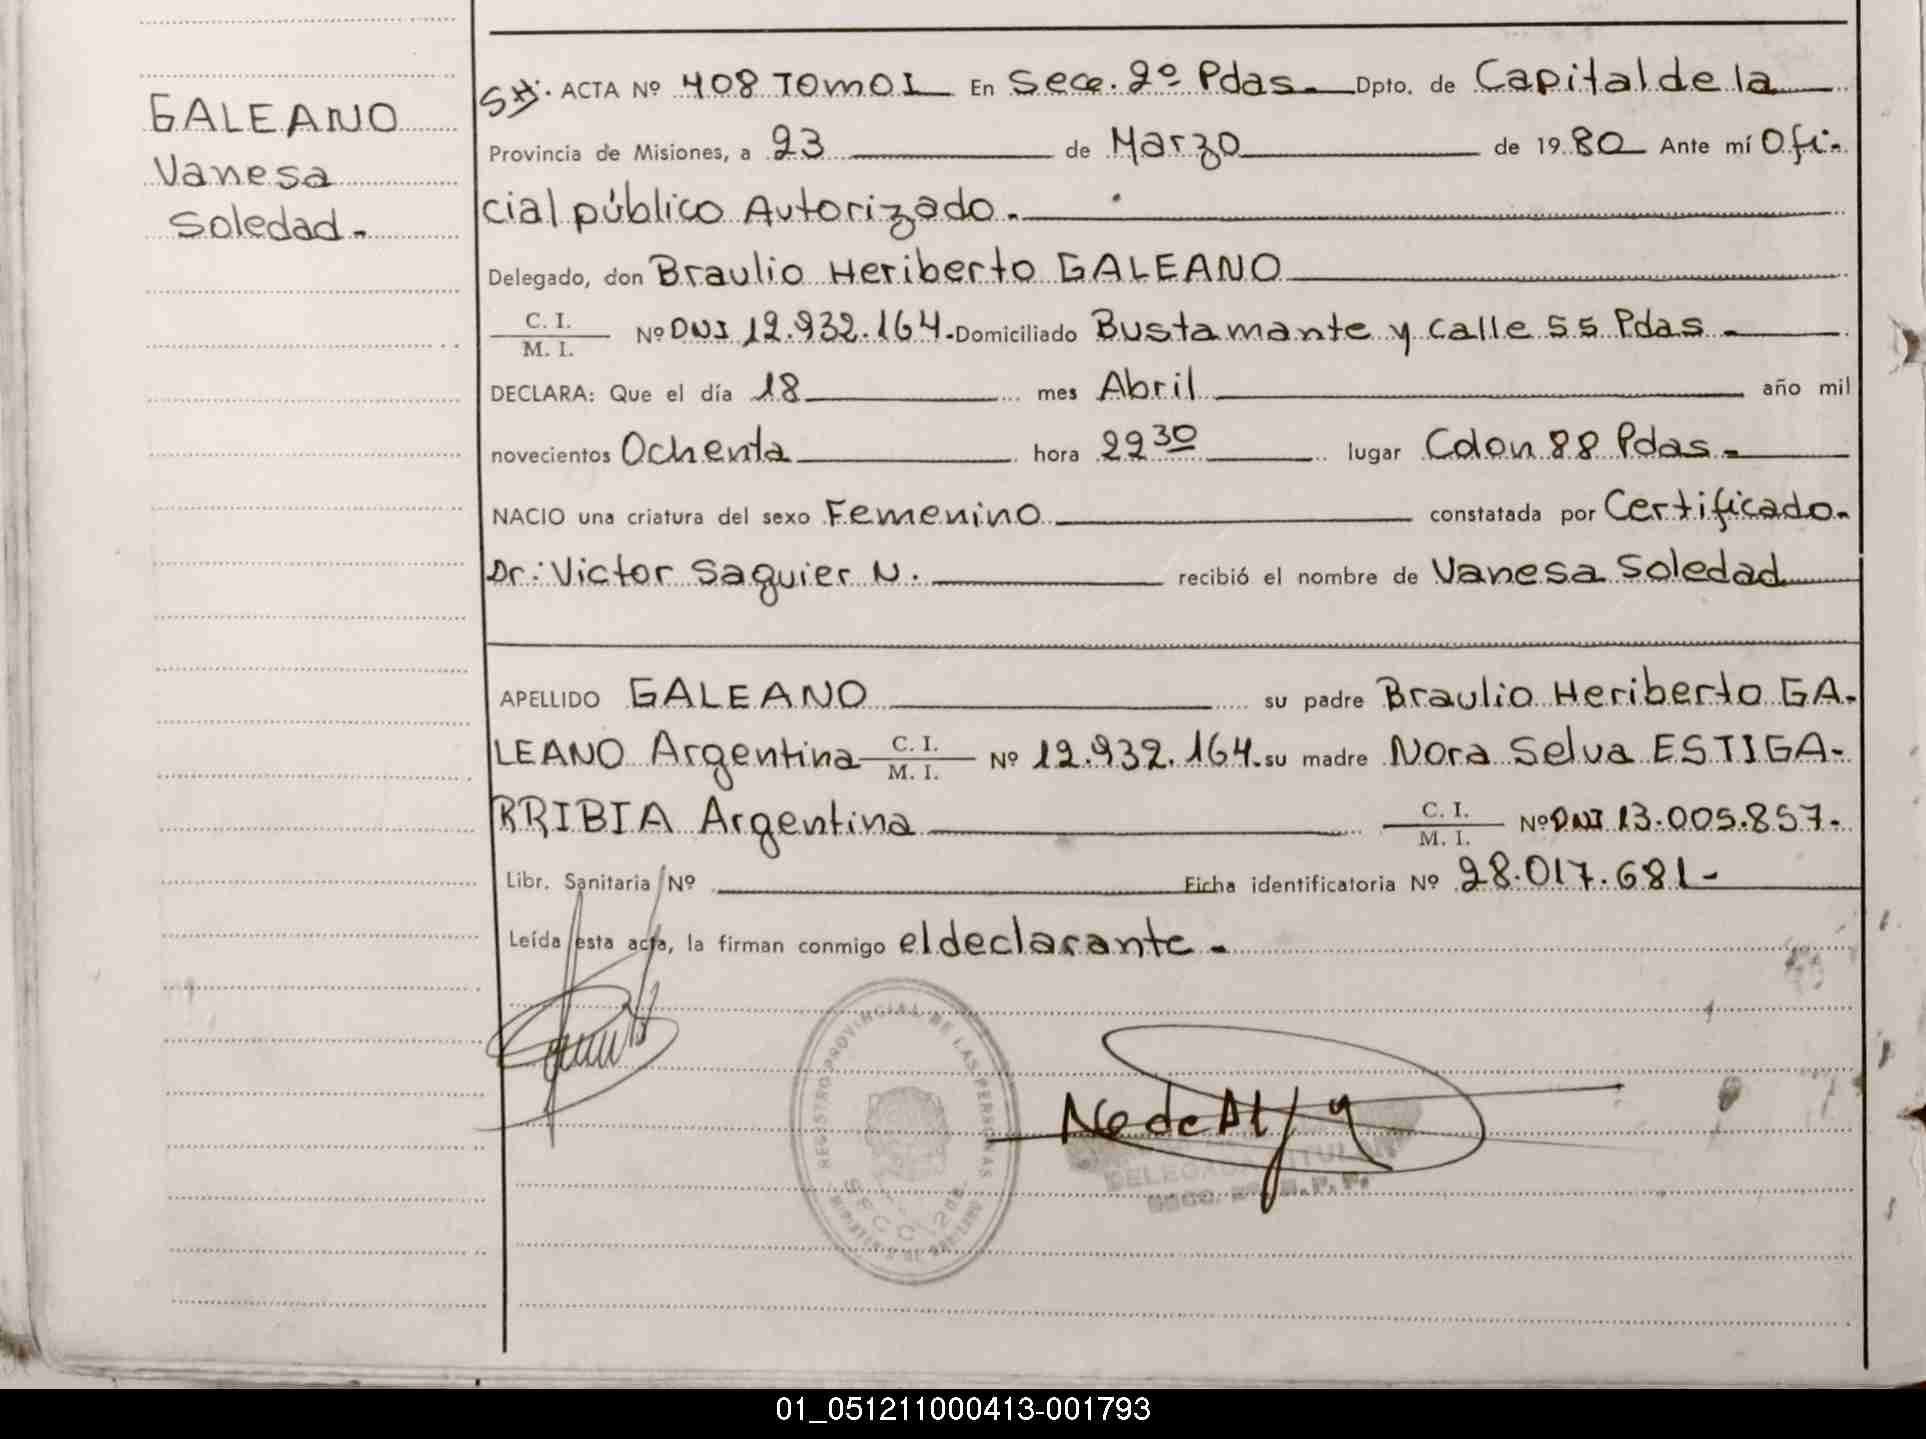 GALEANO
Vanesa
Soledad.-
ACTA Nº 408 TOMO I En Secc. 2º Pdas. Dpto. de Capital de la
Provincia de Misiones, a 23 de Marzo de 1980 Ante mí Ofi-
cial público Autorizado.
Delegado, don Braulio Heriberto GALEANO
C. I.
M. I. Nº DNI 12.932.164. Domiciliado Bustamante y calle 55 Pdas.
DECLARA: Que el día 18 mes Abril año mil
novecientos Ochenta hora 22 30 lugar Colon 88 Pdas.
NACIO una criatura del sexo Femenino constatada por Certificado.
Dr: Victor Saguier N. recibió el nombre de Vanesa Soledad
APELLIDO GALEANO su padre Braulio Heriberto GA-
LEANO Argentina C. I. M. I. Nº 12.932.164. su madre Nora Selva ESTIGA-
RRIBIA Argentina C. I. M. I. Nº DNI 13.005.857.
Libr. Sanitaria Nº Ficha identificatoria Nº 28.017.681-
Leída esta acta, la firman conmigo el declarante.
REGISTRO PROVINCIAL DE LAS PERSONAS
DELEGADA TITULAR
01_051211000413-001793